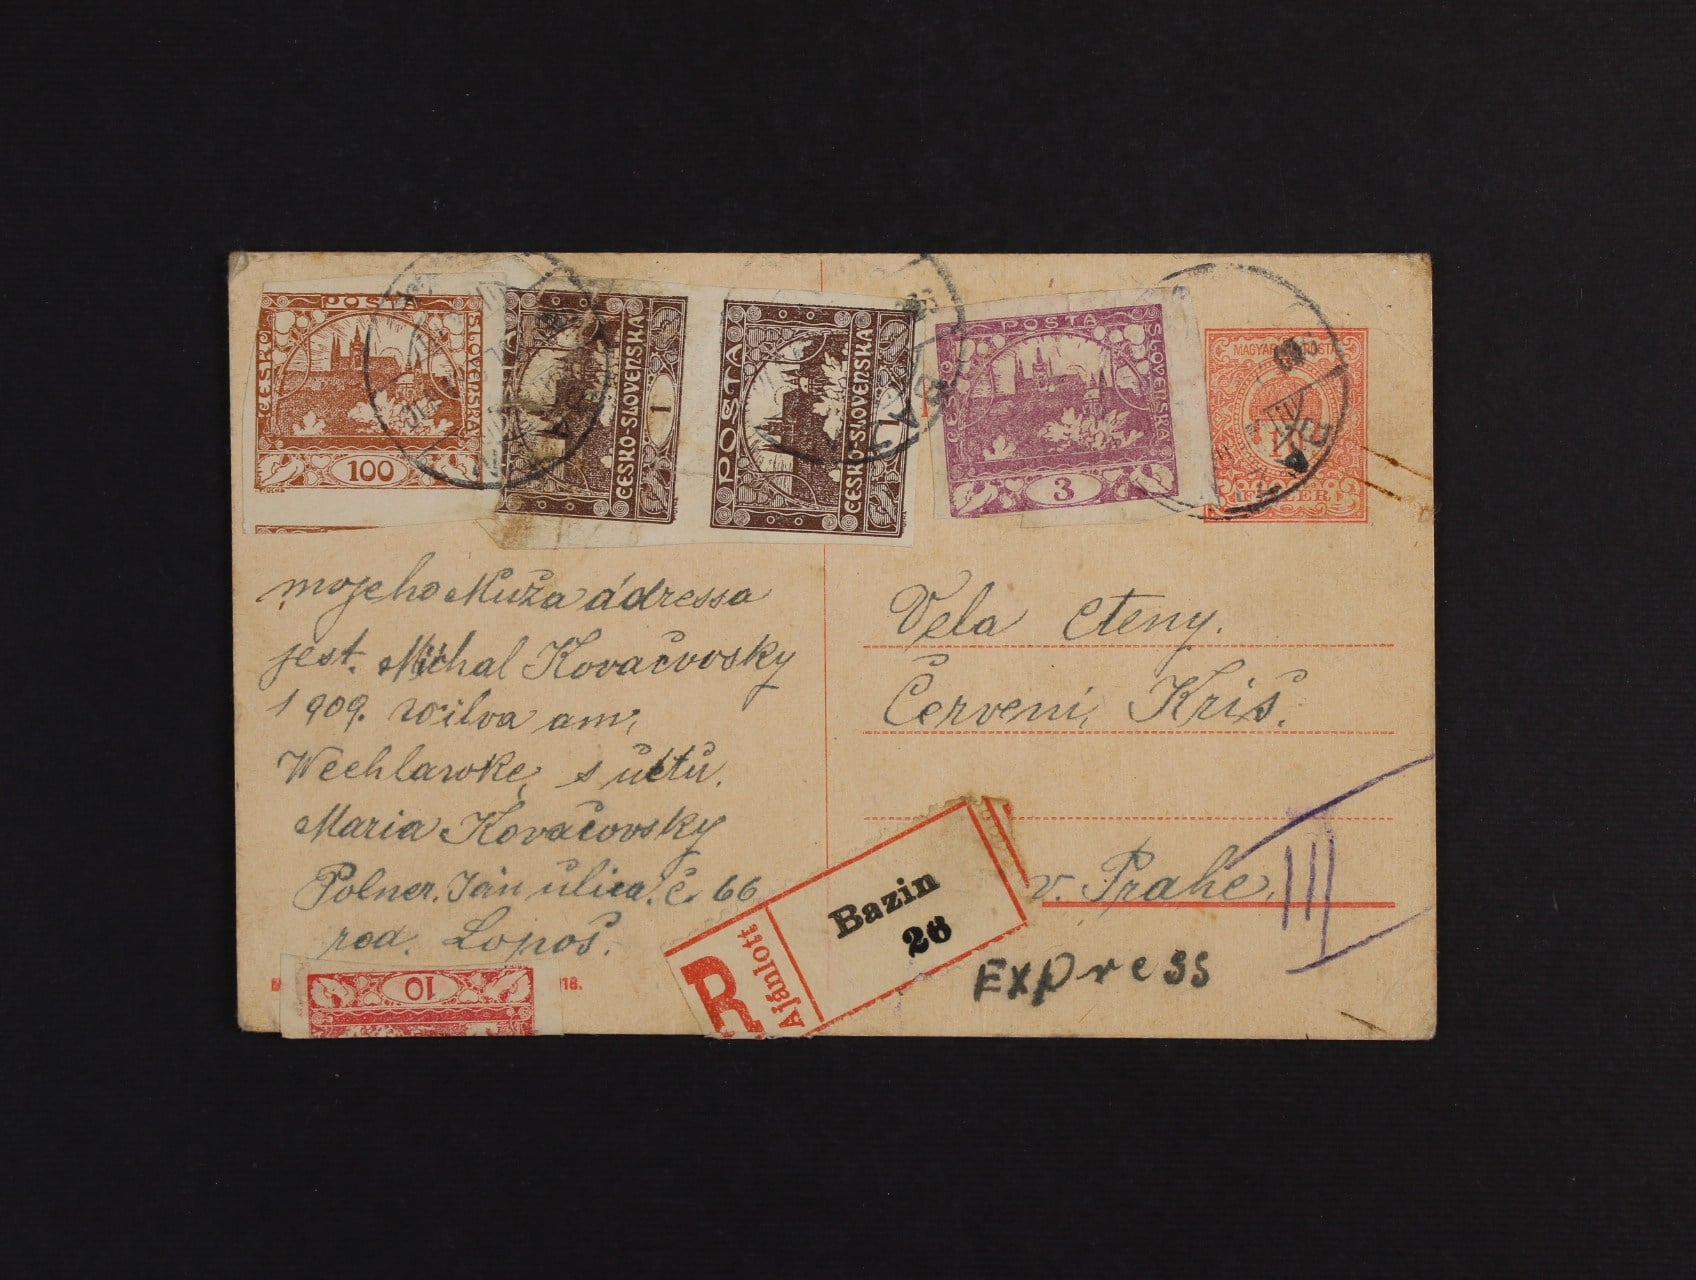 POSTA
ČESKO
SLOVENSKÁ
100
MUCHA
POSTA
ČESKO-SLOVENSKÁ
1
POSTA
ČESKO-SLOVENSKÁ
1
POSTA
SLOVENSKÁ
3
MAGYAR POSTA
FILLÉR
mojeho Muža ádressa
jest. Michal Kovačvosky
1909. Wilva am,
Wechlawke, s úctu.
Maria Kovačovsky
Polner. Ján ulica. č. 66
rod. Lopoš.
10
18.
Vela cteny.
Červeni, Kriš.
v. Prahe,
III
R
Ajánlott
Bazin
26
Express